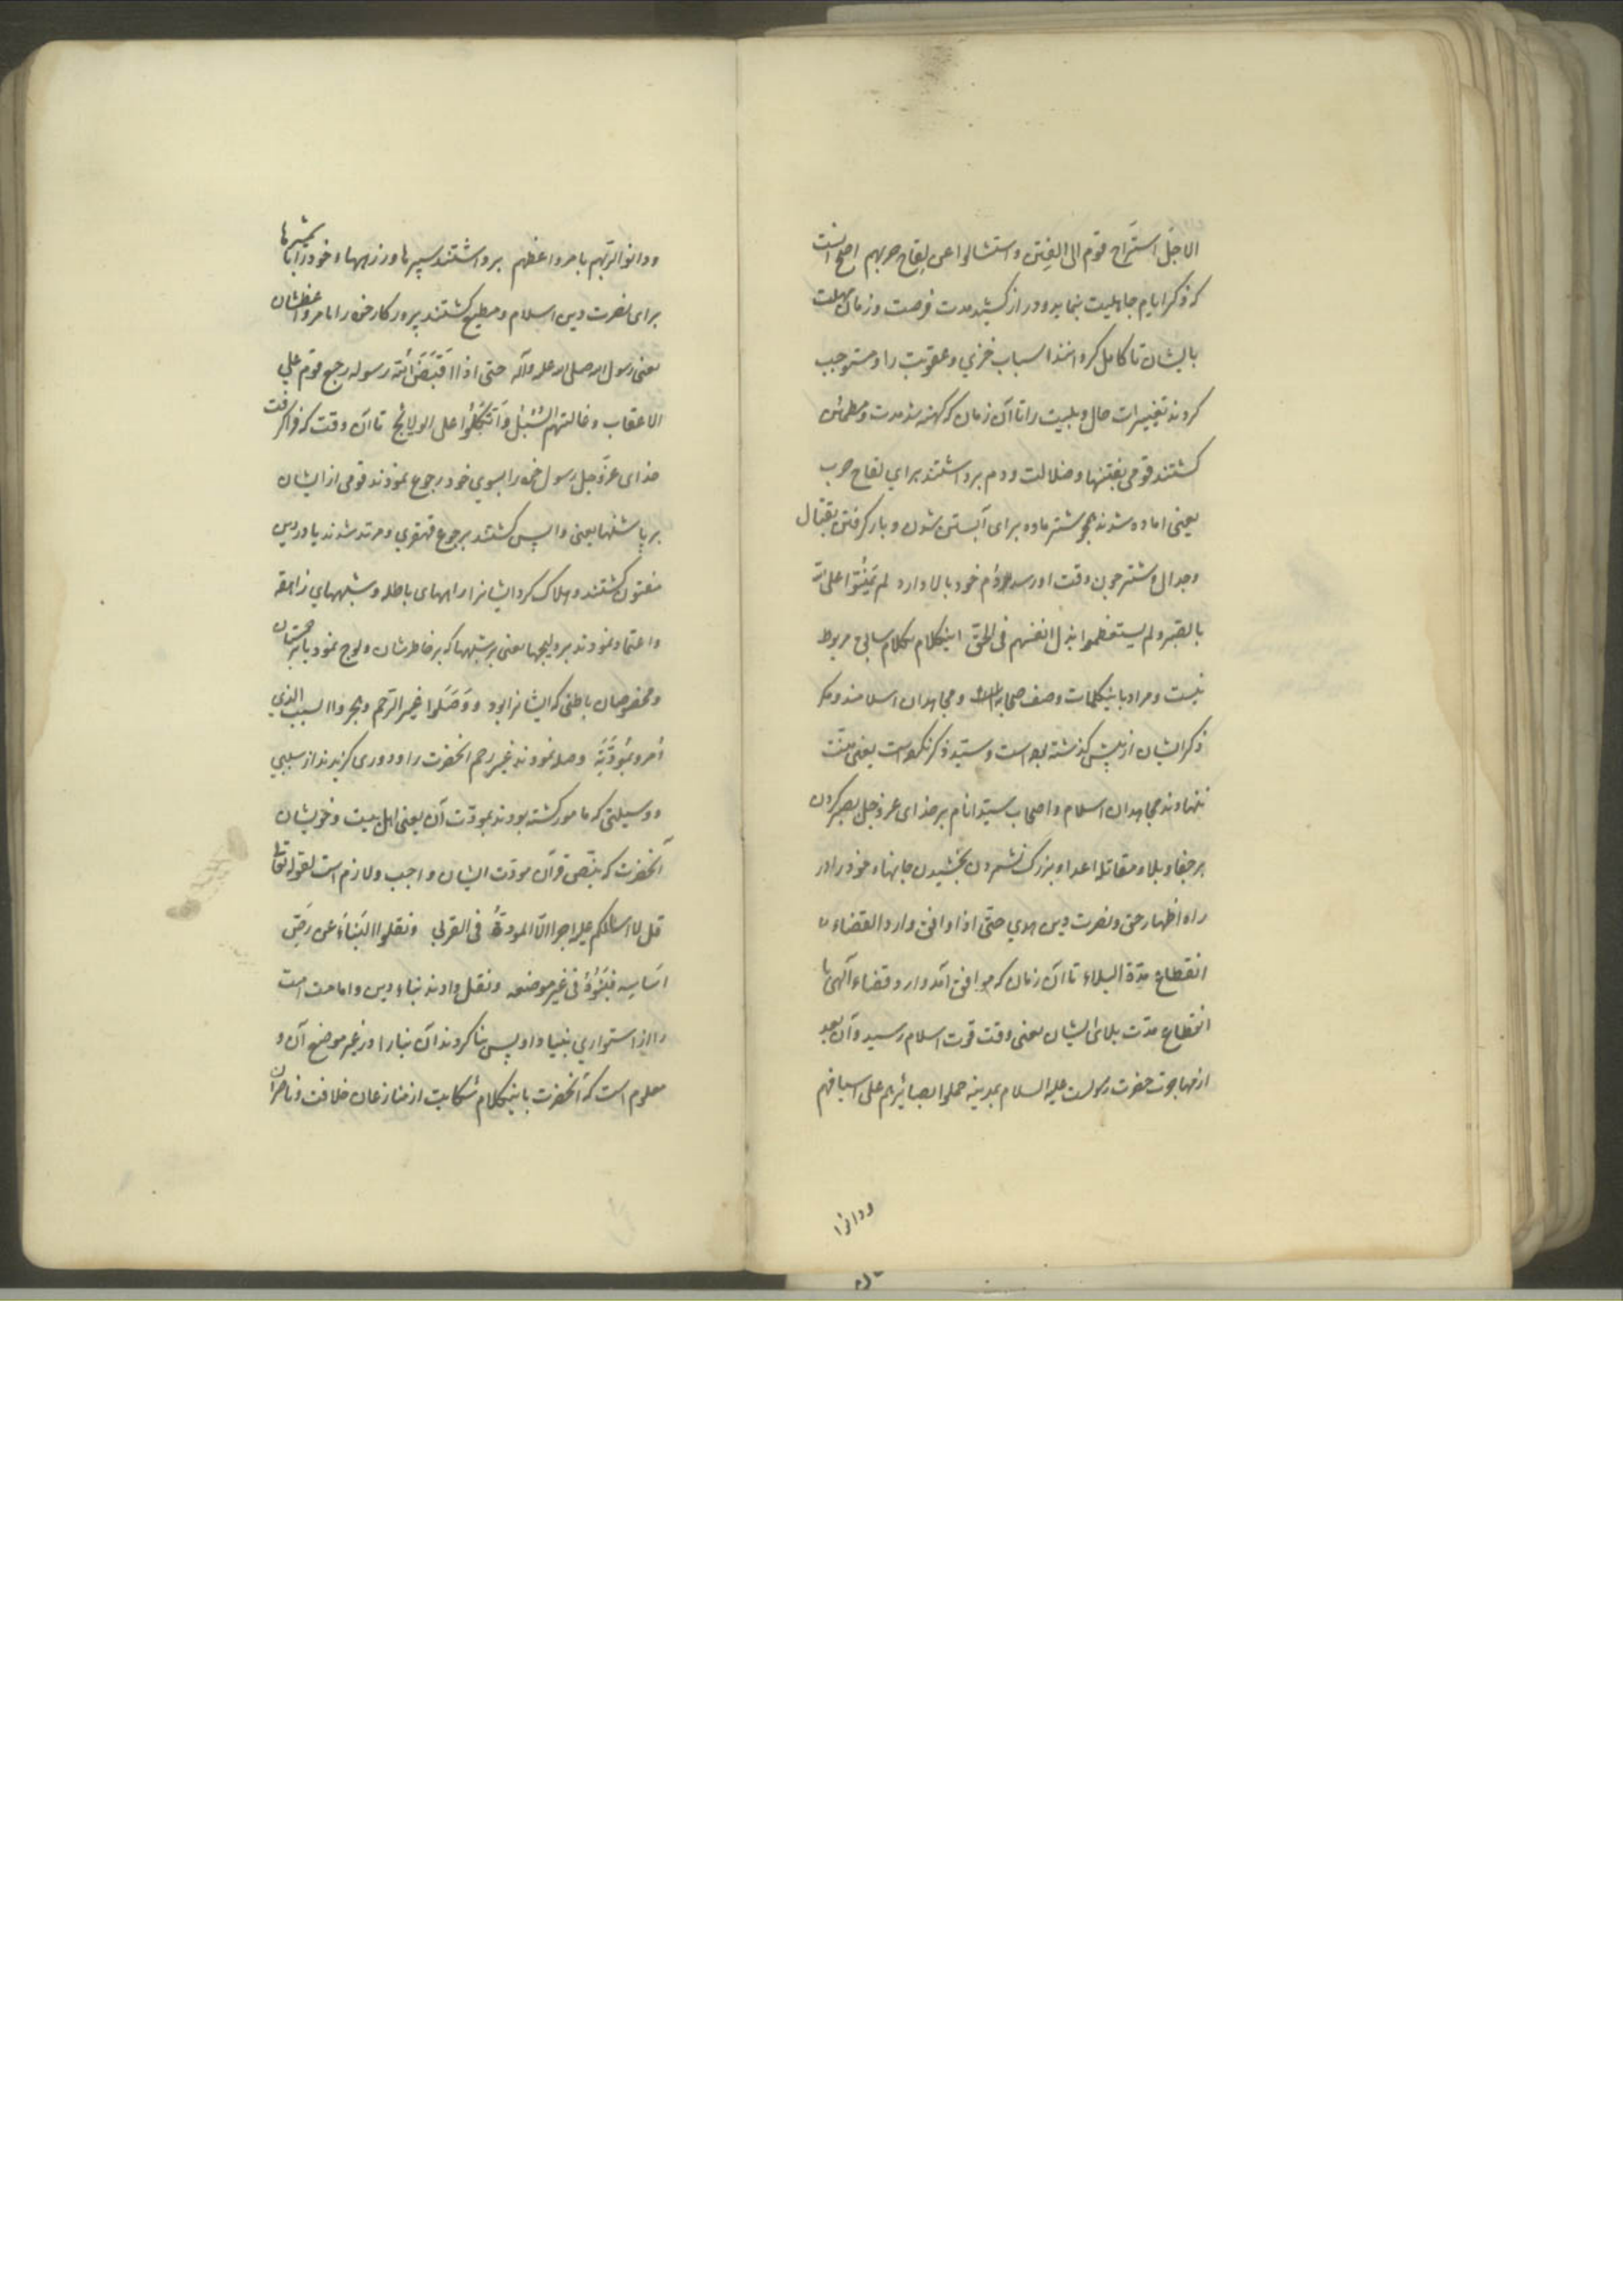 الاجل استراح قوم الی الفتن و استشالوا عن لقاح حربهم اصح آنست
که ذکر ایام جاهلیت بنماید و دراز کشید مدت فرصت و زمان مهلت
بایشان تا کامل کردانند اسباب خزي و عقوبت را و مستوجب
کردند تغییرات حال و بلیت را تا آن زمان که کهنه شد مدت و مطمئن
کشتند قومی بفتنها و ضلالت و دم برداشتند براي لقاح حرب
یعنی اماده شدند همچو شتر ماده برای آبستن شدن و بار کرفتن بقتال
و جدال و شتر چون وقت او رسد دم خود بالا دارد لم یمنوا علی الله
بالصبر و لم یستعظموا بذل انفسهم فی الحق اینکلام بکلام سابق مربوط
نیست و مراد باینکلمات وصف صحابه و مجاهدان اسلامند و مکر
ذکر ایشان از پیش کذشته بود است و سید ذکر نکرده است یعنی منت
ننهادند مجاهدان اسلام و اصحاب سید انام بر خدای عز و جل بصبر کردن
بر جفا و بلا و مقاتله اعداء و بزرک نشمردن بخشیدن جانهاء خود را در
راه اظهار حق و نصرت دین هدي حتی اذا وافق وارد القضاء
انقطاع مدة البلاء تا آن زمان که موافق آمد وارد قضاء آلهی با
انقطاع مدت بلای ایشان یعنی وقت قوت اسلام رسید و آن بعد
از مهاجرت حضرت رسولست علیه السلام بمدینه حملوا بصائرهم علی اسیافهم
ودانوا
ودانوا لربهم بامر واعظهم برداشتند سپرها و زرهها و خود را با شمشیرها
برای نصرت دین اسلام و مطیع کشتند پرورکار خود را بامر واعظشان
یعنی رسول الله صلی الله علیه وآله حتی اذا قبض الله رسوله رجع قوم علي
الاعقاب و غالتهم السبل و اتکلوا علی الولائج تا آن وقت که فرا کرفت
خدای عز و جل رسول خود را بسوي خود رجوع نمودند قومی از ایشان
بر پاشنها یعنی واپس کشتند برجوع قهقري و مرتد شدند یا در دین
مفتون کشتند و هلاک کرد ایشانرا راههای باطله و شبههاي زایغه
و اعتماد نمودند بر ولیجها یعنی بر شبهها که بر خاطرشان ولوج نمود یا بر محبتان
و مخصوصان باطنی که ایشانرا بود و وصلوا غیر الرحم و هجروا السبب الذي
أمروا بمودته وصله نمودند غیر رحم آنحضرت را و دوری کزیدند از سببي
و وسیلتی که مامور کشته بودند بمودت آن یعنی اهل بیت و خویشان
آنحضرت که بنص قرآن مودت ایشان واجب و لازم است لقوله تعالی
قل لا اسالکم علیه اجرا الا المودة فی القربی و نقلوا البناء عن رص
اساسه فبنوه فی غیر موضعه و نقل دادند بناء دین و امامت امت
را از استواري بنیاد او پس بنا کردند آن بنا را در غیر موضع آن و
معلوم است که آنحضرت باینکلام شکایت از منازعان خلافت و ناصران